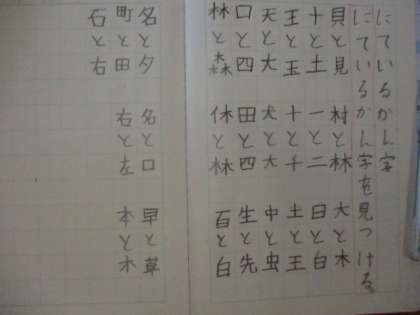 にているかん字
にているかん字を見つける。
貝と見 村と林 大と木
十と土 一と二 日と白
王と玉 十と千 土と王
天と大 犬と大 中と虫
口と四 田と四 生と先
林と森 休と林 百と白
名と夕 名と口 早と草
町と田 右と左 本と木
石と右